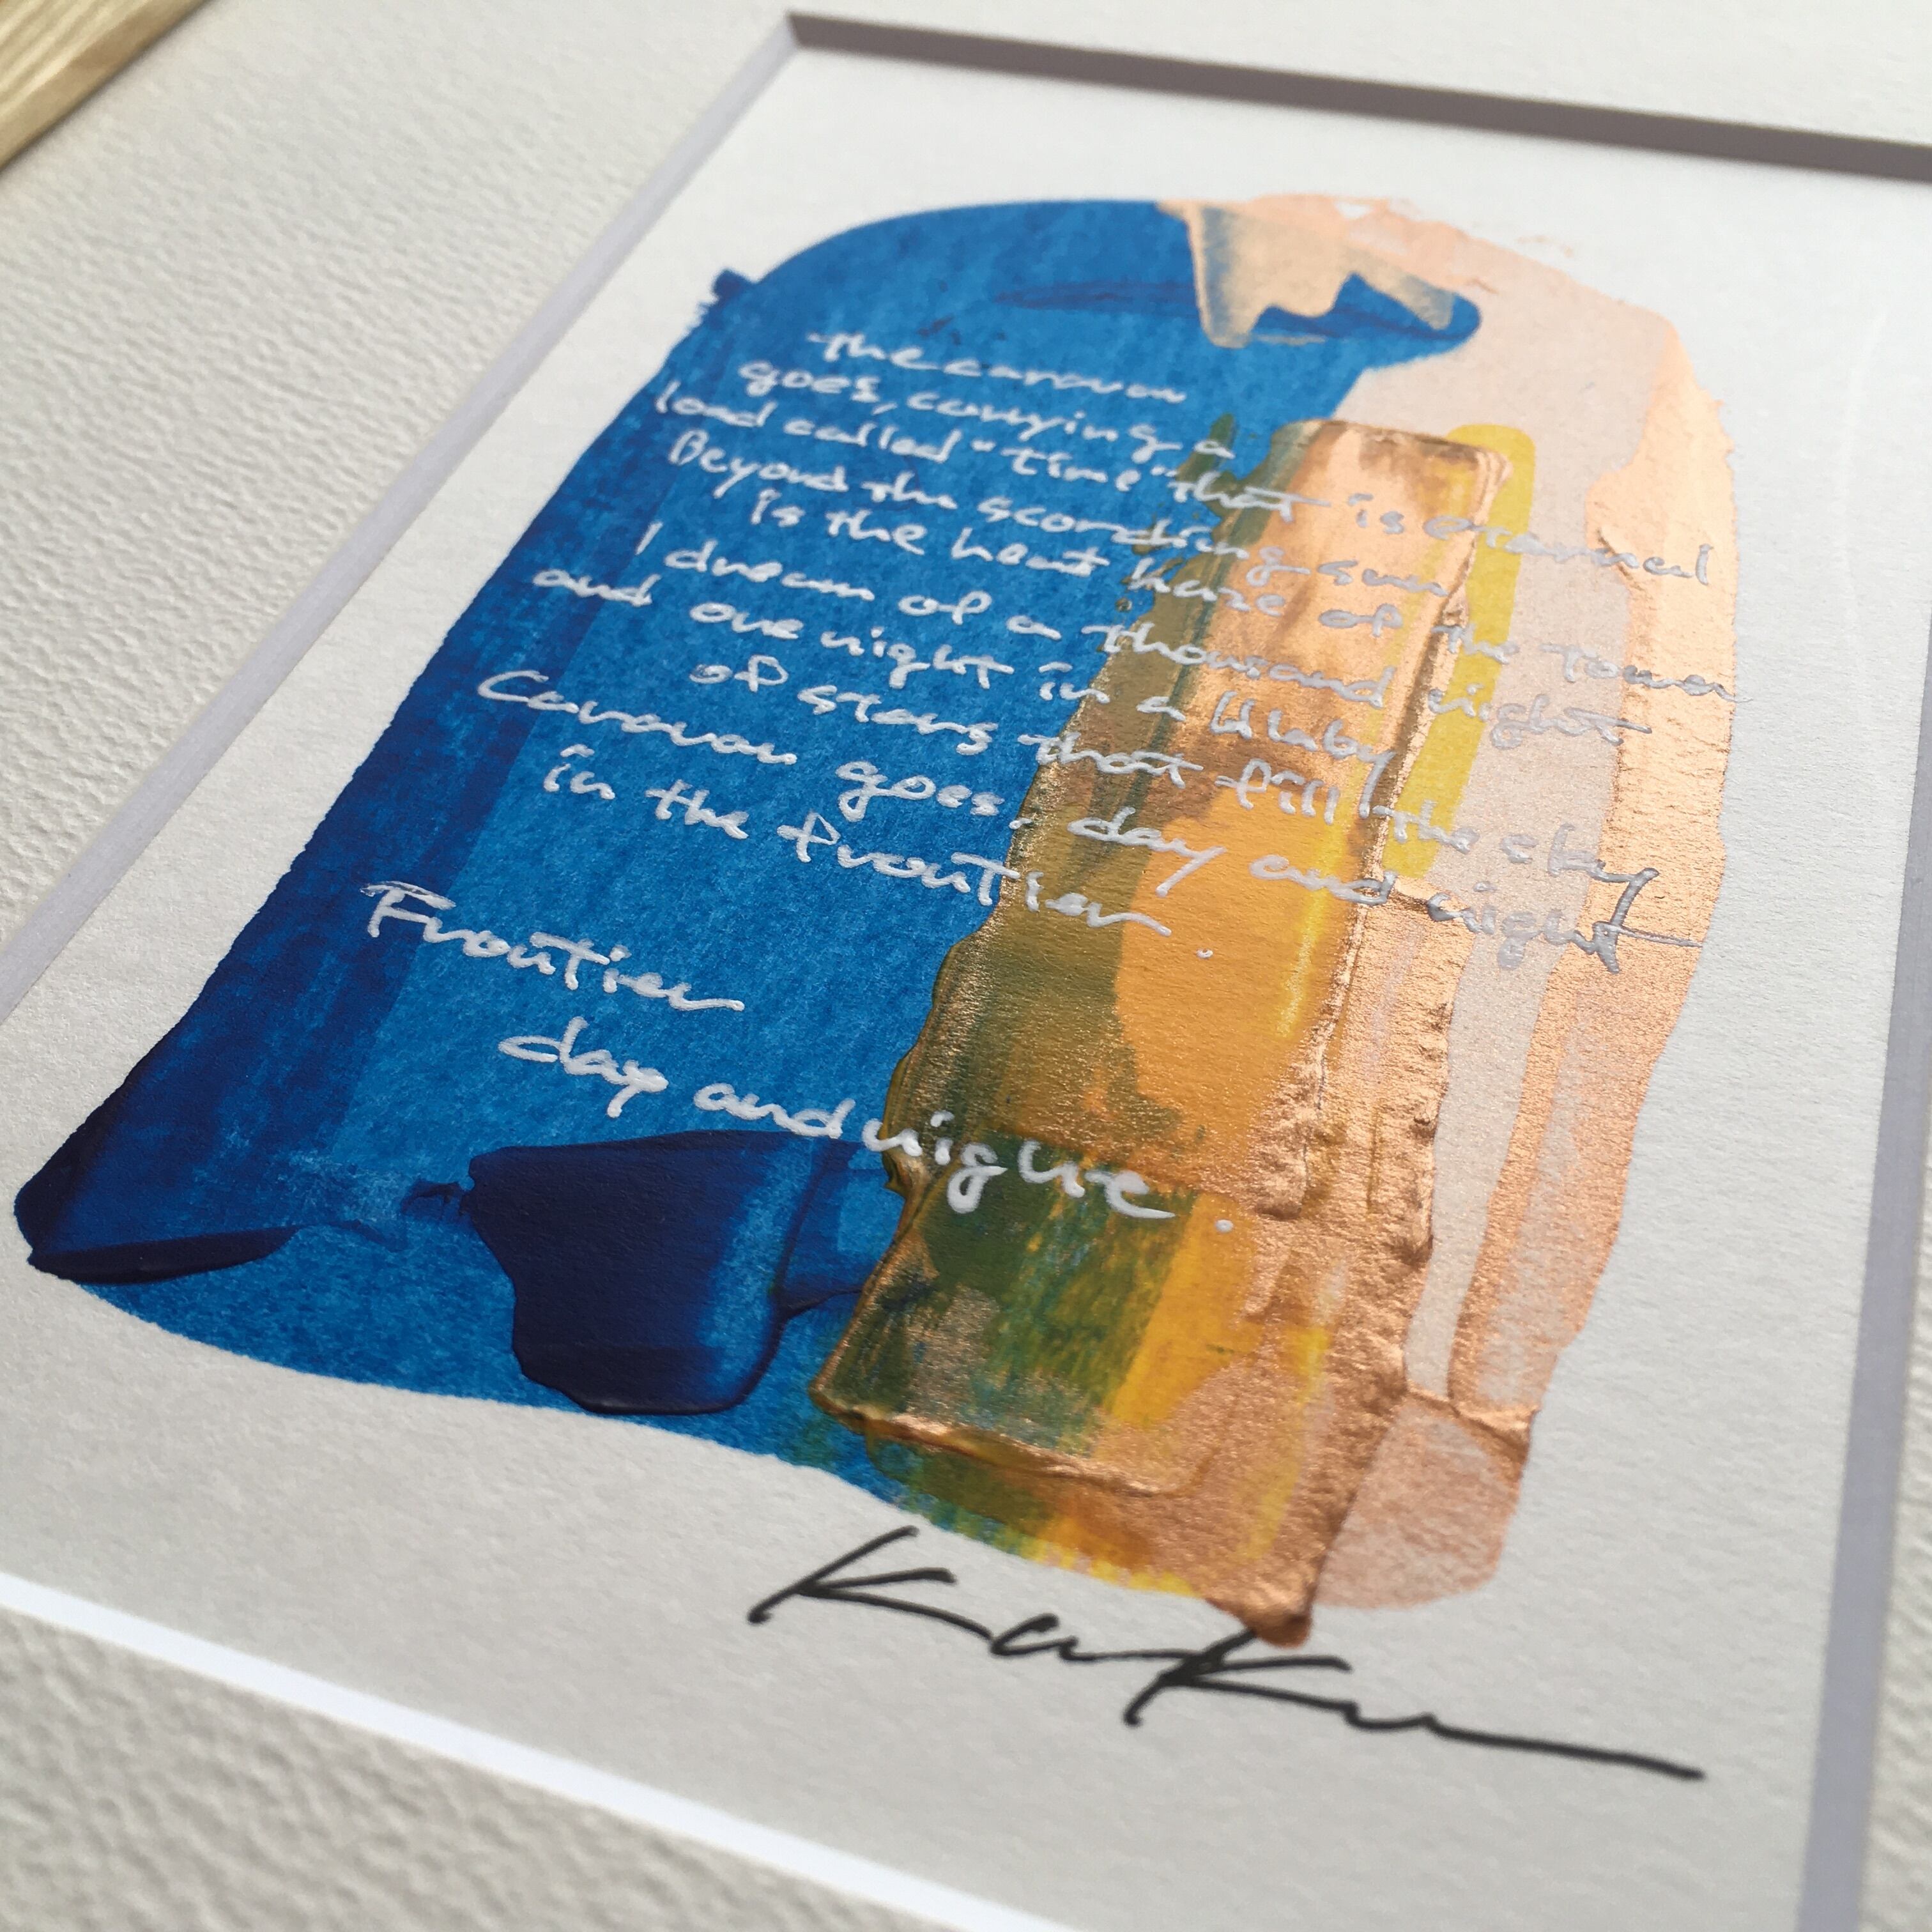 the caravan
goes, carrying a
load called "time" that is eternal
Beyond the scorching sun
is the heat haze of the tower
I dream of a thousand night
and one night in a lullaby
of stars that fill the sky
Caravan goes. day and night
in the frontier.
Frontier
day and night.
Kaku